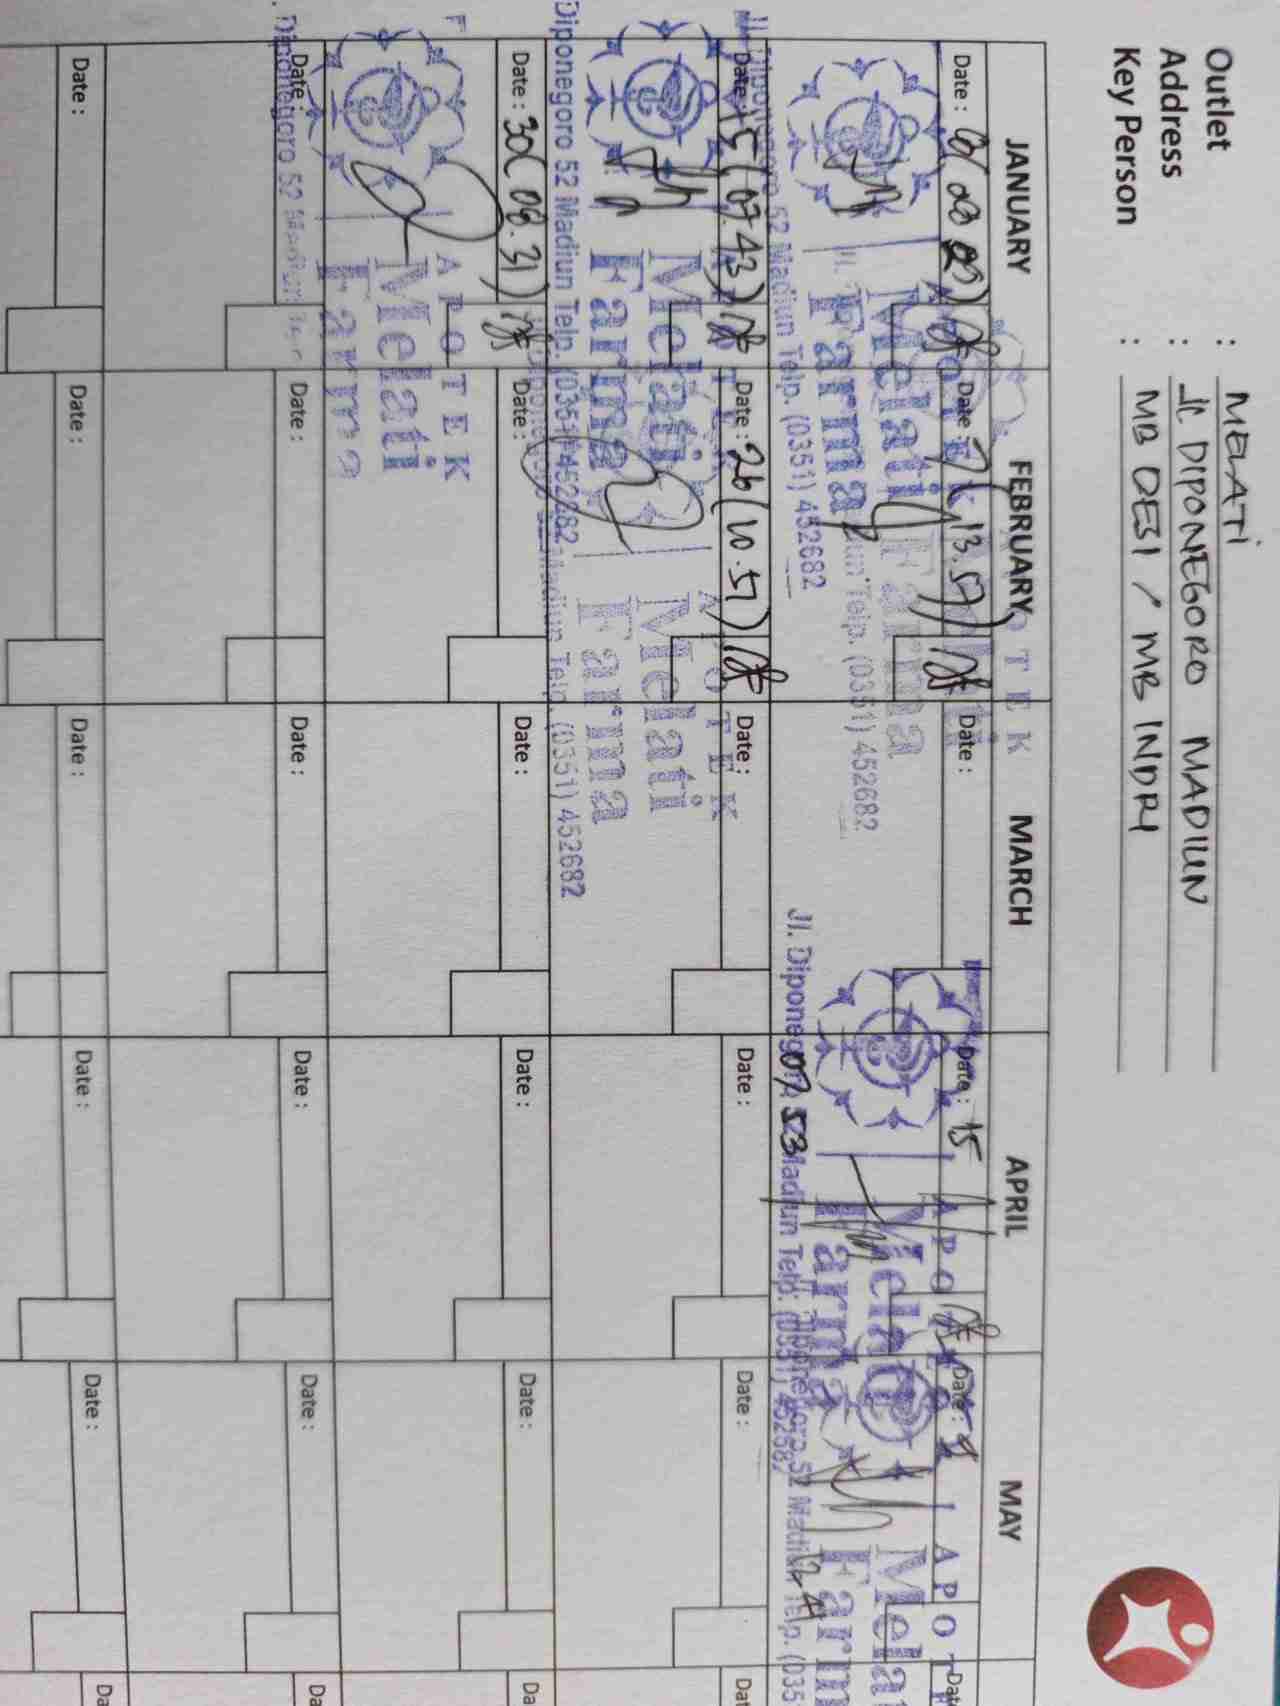 Outlet : MELATI
Address : JL DIPONEGORO MADIUN
Key Person : MB DESI / MB INDRI
JANUARY FEBRUARY MARCH APRIL MAY
Date : Date : 7 13.57) Date : Date : 15 Date : 9 Date
APOTEK APOTEK APOTEK APOT
Melati Farma Melati Farma Mela Farm
Telp. (0351) 452682
07 53
Jl. Diponegoro 52 Madiun Telp. (0351) 452682 Jl. Diponegoro 52 Madiun Telp. (0351) 45268 Diponegoro 52 Madiun Telp. (035
Date : 15 (07.43) Date : 26 (10.57) Date : Date : Date : Dat
APOTEK APOTEK
Melati Melati
Farma Farma
Diponegoro 52 Madiun Telp. (0351) 452682 Diponegoro 52 Madiun Telp. (0351) 452682
Date : 30 (08.31) Date : Date : Date : Date : Dat
APOTEK
Melati
Farma
Diponegoro 52 Madiun
Date : Date : Date : Date : Date : Da
Date : Date : Date : Date : Date : Da